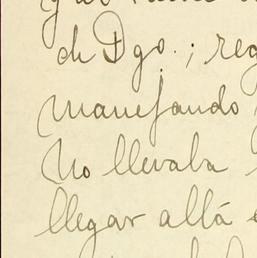 de Dgo.; reg
manejando
no llevaba
llegar allá